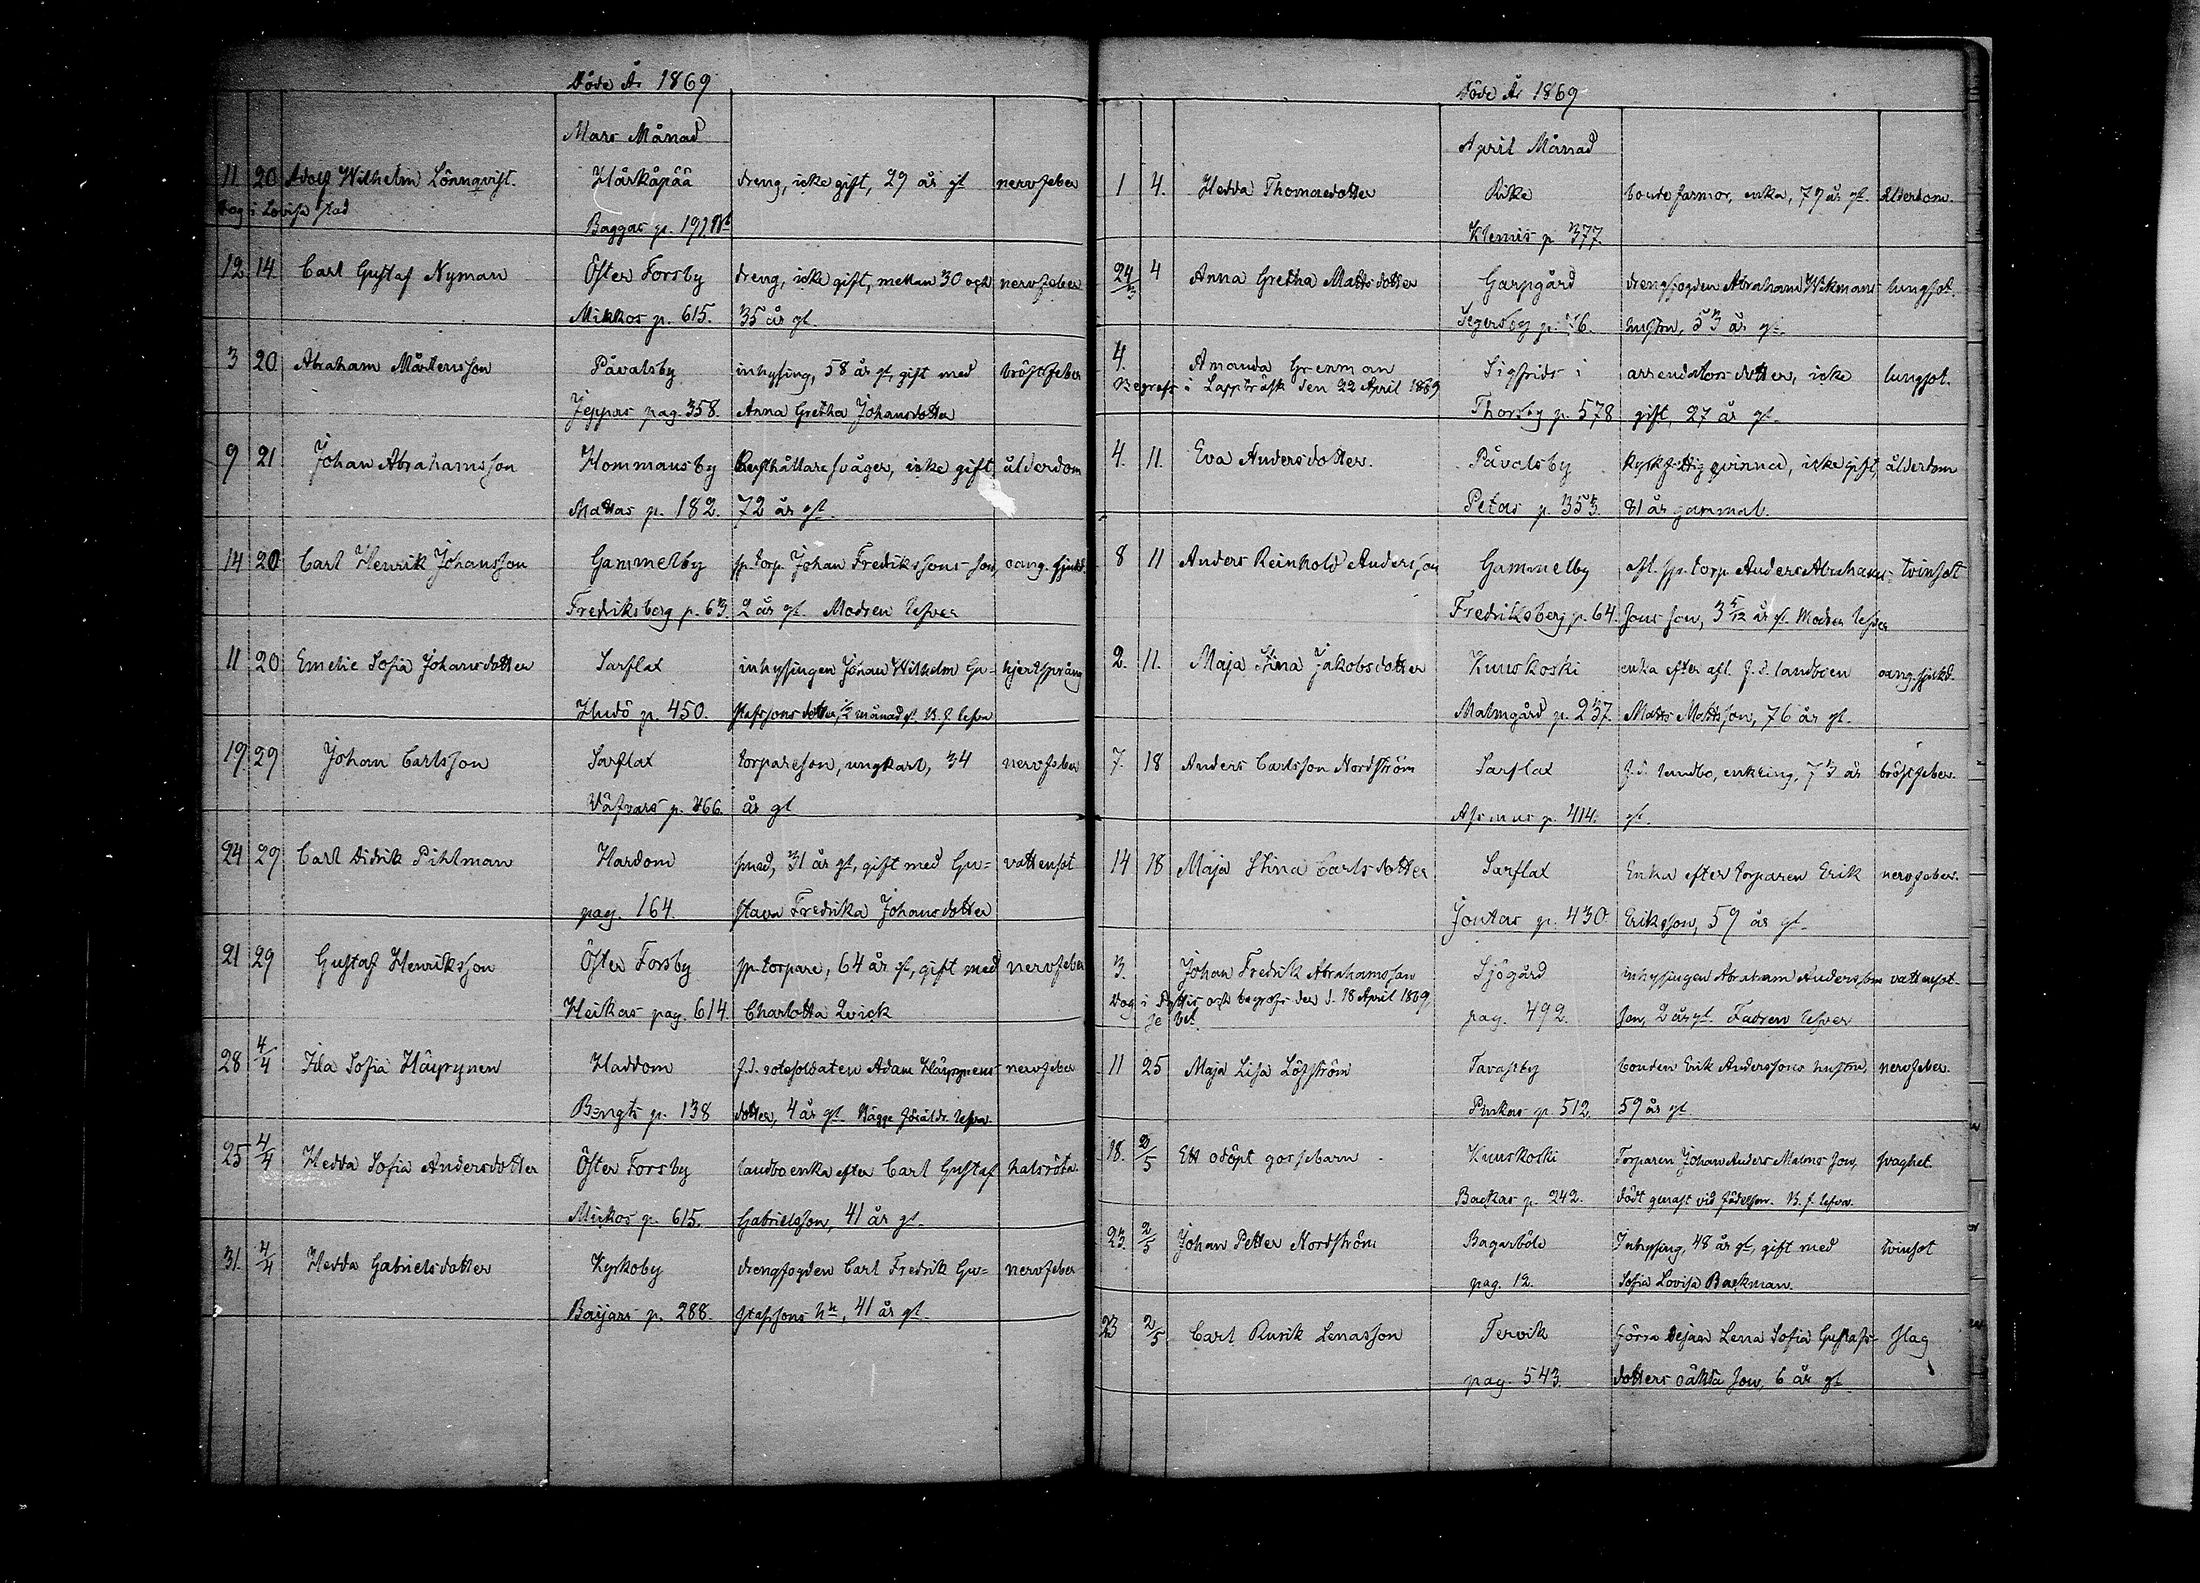 Döde År 1869
Mars Månad
11 20 Adolf Wilhelm Lönnqvist. Hårkåpää dreng, icke gift, 29 år gl nervfeber
Dog i Lovisa stad Baggas p. 197
12 14 Carl Gustaf Nyman Öster Forsby dreng, icke gift, mellan 30 och nervfeber
Mickos p. 615. 35 år gl.
3 20 Abraham Mårtensson Påvalsby inhysing, 58 år gl, gift med bröstfeber
Jeppas pag. 358. Anna Gretha Johansdotter
9 21 Johan Abrahamsson Hommansby Rusthållare svåger, icke gift, ålderdom
Mattas p. 182. 72 år gl.
14 20 Carl Henrik Johansson Gammelby sp. torp. Johan Fredrikssons son, oang. sjukd.
Fredriksberg p. 63. 2 år gl. Modren lefver
11 20 Emelie Sofia Johansdotter Sarflax inhysingen Johan Wilhelm Gu- hjertsprång
Hudö p. 450. stafssons dotter, 1/2 månad gl. B. f. lefva
19. 29 Johan Carlsson Sarflax torpareson, ungkarl, 34 nervfeber
Väfvars p. 466. år gl
24 29 Carl Didrik Pihlman Hardom smed, 31 år gl, gift med Gu= vattensot
pag. 164. stava Fredrika Johansdotter
21 29 Gustaf Henriksson Öster Forsby sp. torpare, 64 år gl, gift med nervfeber
Heikas pag. 614. Charlotta Qvick
28 4/4 Ida Sofia Häyrynen Haddom f.d. rotesoldaten Adam Häyrynens nervfeber
Bengts p. 138 dotter, 4 år gl. Bägge föräldr. lefva
25 4/4 Hedda Sofia Andersdotter Öster Forsby landboenka efter Carl Gustaf halsröta
Mickos p. 615. Gabrielsson, 41 år gl.
31. 4/4 Hedda Gabrielsdotter Kyrkoby drengfogden Carl Fredrik Gu= nervfeber
Baijars p. 288. stafssons hu, 41 år gl.
Döde År 1869
April Månad
1 4. Hedda Thomasdotter Rike bonde farmor, enka, 79 år gl. ålderdom.
Klemis p. 377.
24/3 4 Anna Gretha Mattsdotter Garpgård drengfogden Abraham Wikmans lungsot.
Segersby p. 76. hustru, 53 år gl.
4. Amanda Grenman Sigfrids i arrendators dotter, icke lungsot.
Begrafs i Lappträsk den 22 April 1869
Thorsby p. 578 gift, 27 år gl.
4. 11. Eva Andersdotter. Påvalsby kyrkfattig qvinna, icke gift, ålderdom
Petas p. 353. 81 år gammal.
8 11 Anders Reinhold Andersson Gammelby afl. sp. torp Anders Abrahams- tvinsot
Fredriksberg p. 64. sons son, 3 5/12 år gl. Modren lefver
2. 11. Maja Stina Jakobsdotter Kuuskoski enka efter afl. f.d. landboen oang. sjukd.
Malmgård p. 237. Matts Mattsson, 76 år gl.
7. 18 Anders Carlsson Nordström Sarflax f.d. landbo, enkling, 73 år bröstfeber.
Asmus p. 414. gl.
14 18 Maja Stina Carlsdotter Sarflax Enka efter torparen Erik nervfeber.
Jontas p. 430. Eriksson, 59 år gl.
3. Johan Fredrik Abrahamsson Sjögård inhysingen Abraham Andersson vattensot.
Dog i Pyttis och begrofs der d. 18 April 1869
pag. 492. son, 2 år gl. Fadren lefver
11 25 Maja Lisa Löfström Tavastby bonden Erik Anderssons hustru, nervfeber.
Pukas p. 512. 59 år gl
18. 2/5 Ett odöpt gossebarn Kuuskoski Torparen Johan Anders Malms son, svaghet.
Backas p. 242. dödt genast vid födelsen. B. f. lefva.
23. 2/5 Johan Petter Nordström Bagarböle Inhysing, 48 år gl, gift med tvinsot
pag. 12. Sofia Lovisa Backman.
23 2/5 Carl Rurik Lenasson Tervik förra dejan Lena Sofia Gustafs- slag
pag. 543. dotters oäkta son, 6 år gl